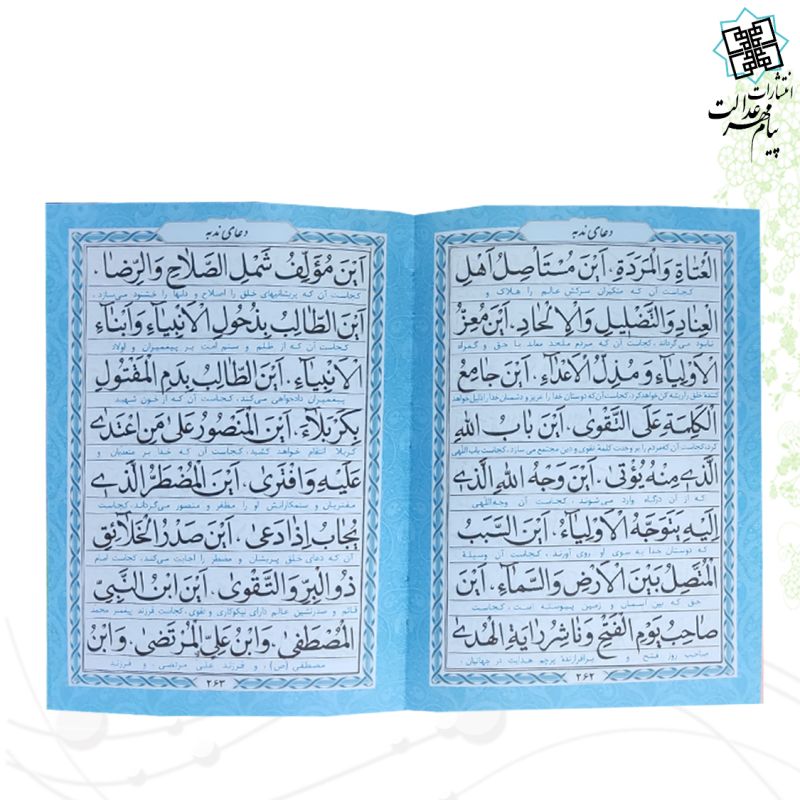 انتشارات
پیام مهر عدالت
دعای ندبه
الْعُتاةِ وَالْمَرَدَةِ، اَیْنَ مُسْتَاْصِلُ اَهْلِ
کجاست آن که متکبران سرکش عالم را هلاک و
الْعِنادِ وَالتَّضْلیلِ وَالْاِلْحادِ، اَیْنَ مُعِزُّ
نابود می‌گرداند، کجاست آن که مردم ملحد معاند با حق و گمراه
الْاَوْلِیاءِ وَ مُذِلُّ الْاَعْداءِ، اَیْنَ جامِعُ
کننده خلق را ریشه کن خواهد کرد، کجاست آن که دوستان خدا را عزیز و دشمنان خدا را ذلیل خواهد
الْکَلِمَةِ عَلَی التَّقْوی، اَیْنَ بابُ اللهِ
کرد، کجاست آن که مردم را بر وحدت کلمة تقوی و دین مجتمع می سازد، کجاست باب اللهی
الَّذی مِنْهُ یُؤْتی، اَیْنَ وَجْهُ اللهِ الَّذی
که از آن درگاه وارد می‌شوند، کجاست آن وجه‌اللهی
اِلَیْهِ یَتَوَجَّهُ الْاَوْلِیاءُ، اَیْنَ السَّبَبُ
که دوستان خدا به سوی او روی آورند، کجاست آن وسیلة
الْمُتَّصِلُ بَیْنَ الْاَرْضِ وَالسَّماءِ، اَیْنَ
حق که بین آسمان و زمین پیوسته است، کجاست
صاحِبُ یَوْمِ الْفَتْحِ وَ ناشِرُ رایَةِ الْهُدی
صاحب روز فتح و برافرازندة پرچم هدایت در جهانیان،
۲۶۲
دعای ندبه
اَیْنَ مُؤَلِّفُ شَمْلِ الصَّلاحِ وَالرِّضا،
کجاست آن که پریشانیهای خلق را اصلاح و دلها را خشنود می‌سازد،
اَیْنَ الطّالِبُ بِذُحُولِ الْاَنْبِیاءِ وَ اَبْناءِ
کجاست آن که از ظلم و ستم امت بر پیغمبران و اولاد
الْاَنْبِیاءِ، اَیْنَ الطّالِبُ بِدَمِ الْمَقْتُولِ
پیغمبران دادخواهی می‌کند، کجاست آن که از خون شهید
بِکَرْبَلاءَ، اَیْنَ الْمَنْصُورُ عَلی مَنِ اعْتَدی
کربلا انتقام خواهد کشید، کجاست آن که خدا بر متعدیان و
عَلَیْهِ وَافْتَری، اَیْنَ الْمُضْطَرُّ الَّذی
مفتریان و ستمکارانش او را مظفر و منصور می‌گرداند، کجاست
یُجابُ اِذا دَعی، اَیْنَ صَدْرُ الْخَلائِقِ
آن که دعای خلق پریشان و مضطر را اجابت می‌کند، کجاست امام
ذُو الْبِرِّ وَالتَّقْوی، اَیْنَ ابْنُ النَّبِیِّ
قائم و صدرنشین عالم دارای نیکوکاری و تقوی، کجاست فرزند پیغمبر محمد
الْمُصْطَفی، وَابْنُ عَلِیٍّ الْمُرْتَضی، وَابْنُ
مصطفی (ص)، و فرزند علی مرتضی، و فرزند
۲۶۳